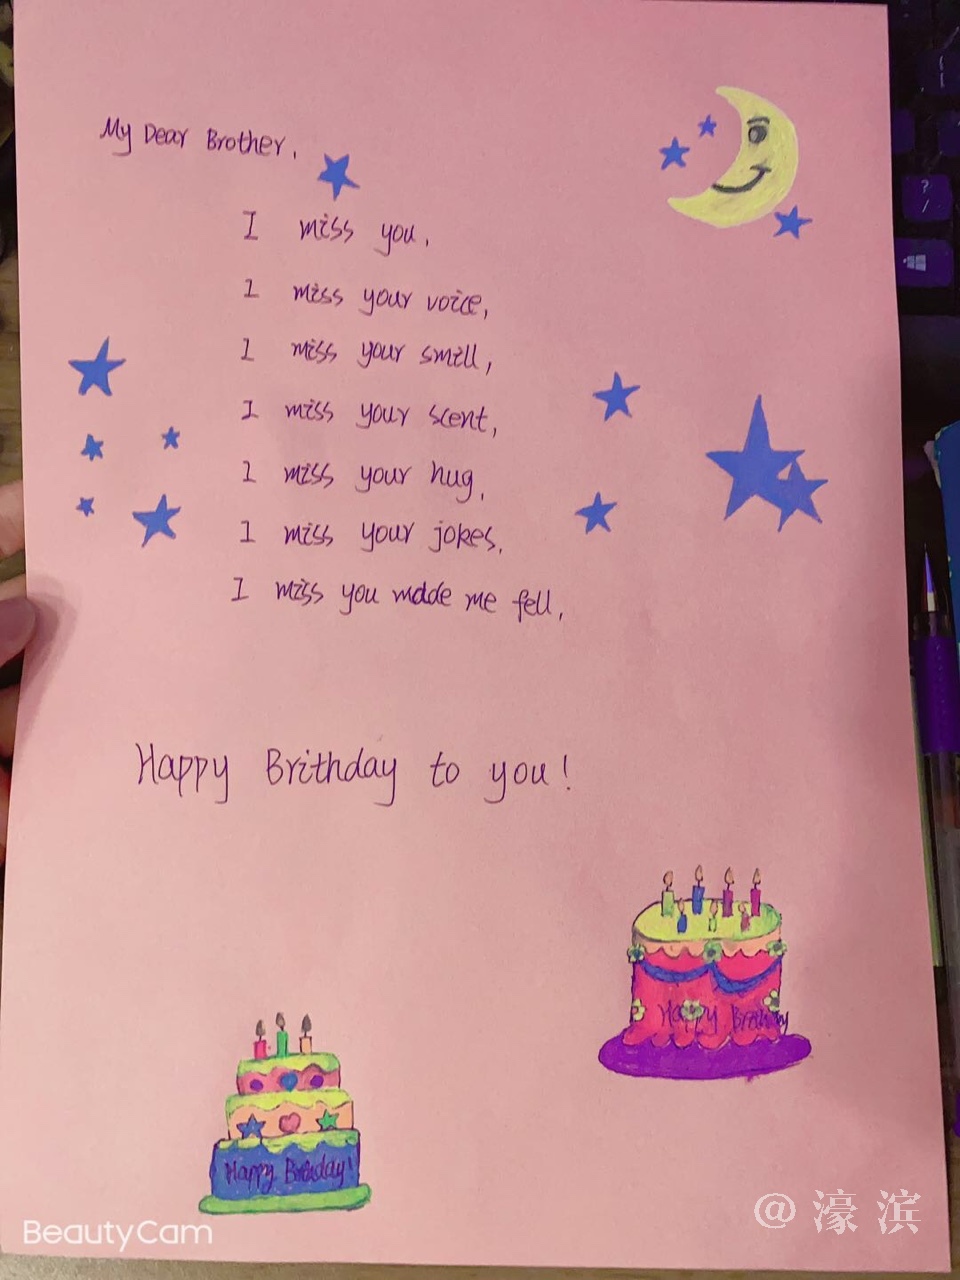 My Dear Brother,
I miss you,
I miss your voice,
I miss your smill,
I miss your scent,
I miss your hug,
I miss your jokes,
I miss you made me fell,
Happy Brithday to you!
Happy
Happy
BeautyCam
@濠滨
?
/